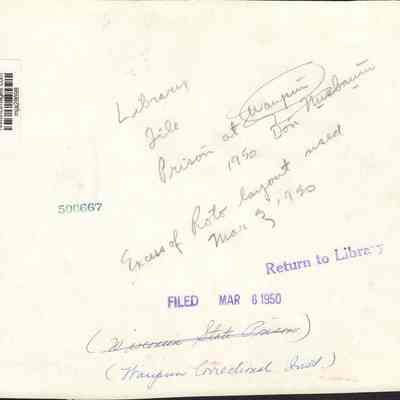 Library
File
Prison at Waupun
1950 Don Nusbaum
Excess of Roto layout used
Mar 3, 1950
500667
Return to Library
FILED MAR 6 1950
(Wisconsin State Prison)
(Waupun Correctional Inst.)